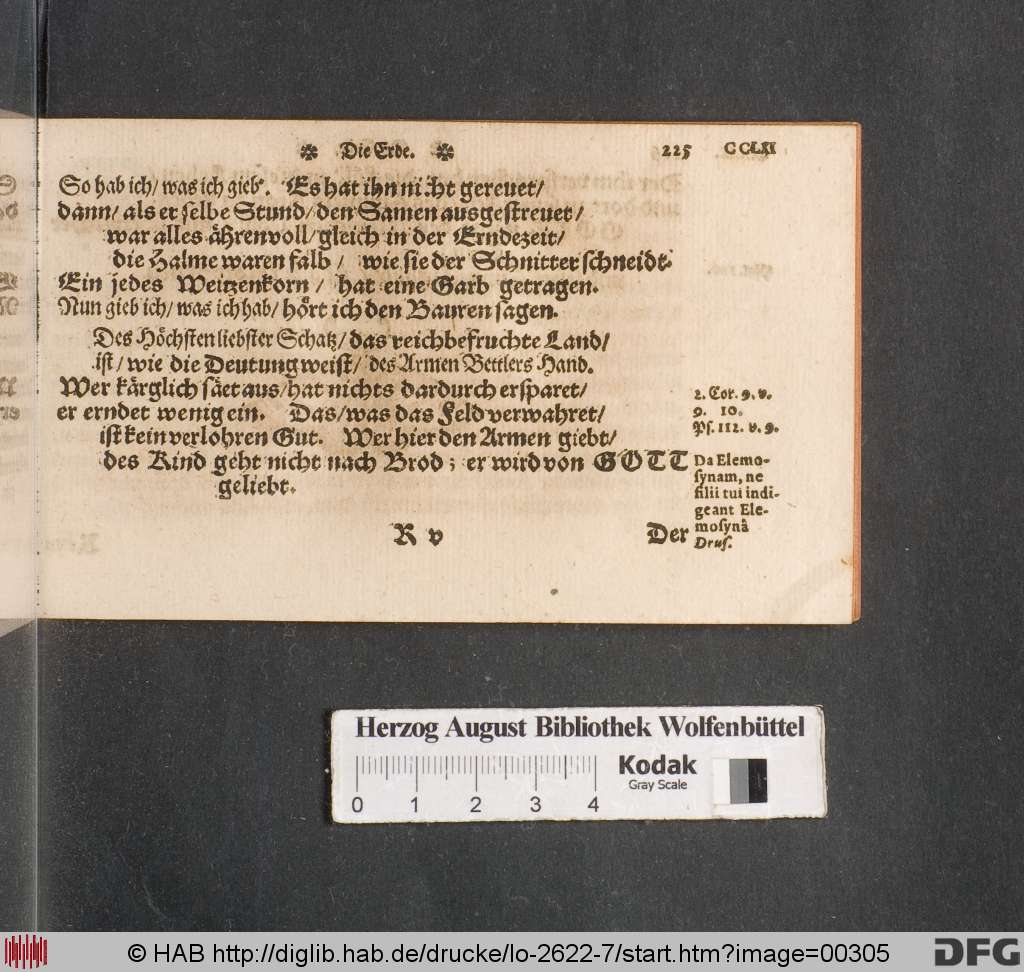 ✲ Die Erde. ✲ 225 CCLXI
So hab ich/ was ich gieb. Es hat ihn nicht gereuet/
dann/ als er selbe Stund/ den Samen ausgestreuet/
war alles ährenvoll/ gleich in der Erndezeit/
die Halme waren falb/ wie sie der Schnitter schneidt.
Ein jedes Weitzenkorn/ hat eine Garb getragen.
Nun gieb ich/ was ich hab/ hört ich den Bauren sagen.
Des Höchsten liebster Schatz/ das reichbefruchte Land/
ist/ wie die Deutung weist/ des Armen Bettlers Hand.
Wer kärglich säet aus/ hat nichts dardurch ersparet/
er erndet wenig ein. Das/ was das Feld verwahret/
ist kein verlohren Gut. Wer hier den Armen giebt/
des Kind geht nicht nach Brod; er wird von GOTT
geliebt.
2. Cor. 9. v.
9. 10.
Ps. 112. v. 9.
Da Elemo-
synam, ne
filii tui indi-
geant Ele-
mosynâ
Drus.
R v Der
Herzog August Bibliothek Wolfenbüttel
Kodak
Gray Scale
0 1 2 3 4
© HAB http://diglib.hab.de/drucke/lo-2622-7/start.htm?image=00305
DFG